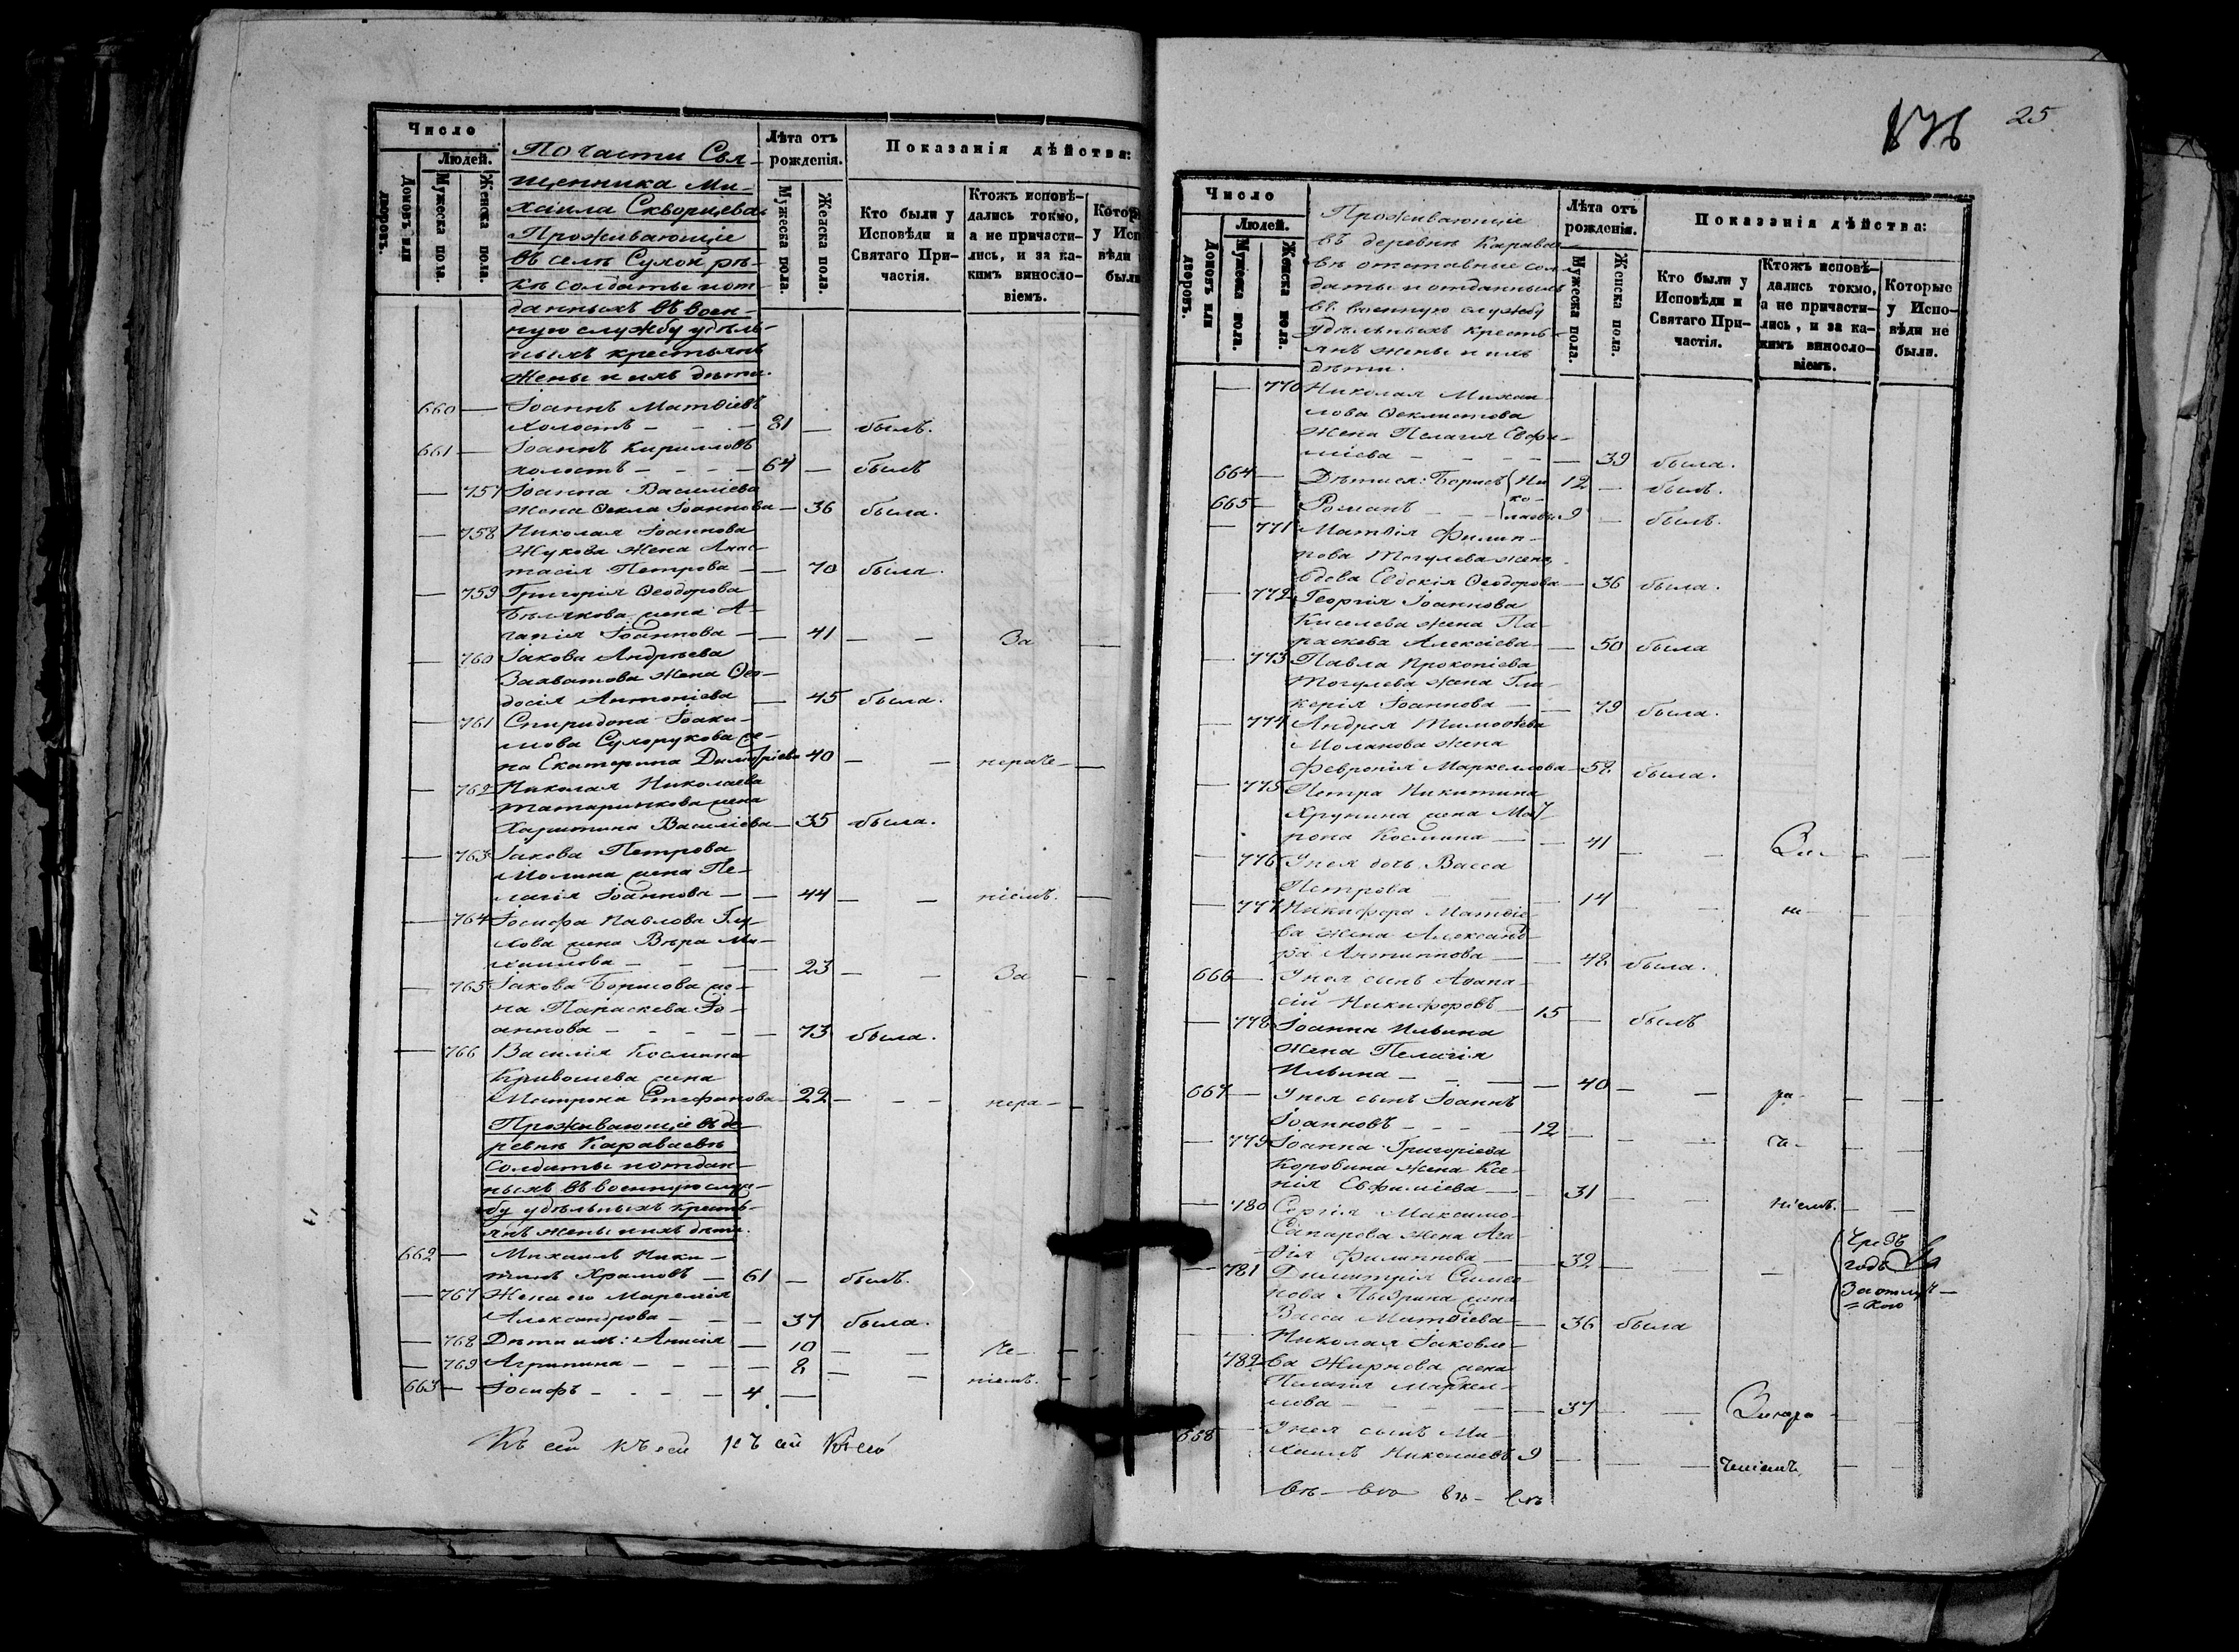 Число
Людей.
Домовъ или дворовъ.
Мужеска пола.
Женска пола.
По части Свя-
щенника Ми-
хаила Скворцева
Проживающіе
въ селѣ Сухой рѣ-
кѣ солдаты и от-
данныхъ въ воен-
ную службу удѣль-
ныхъ крестьянъ
жены и ихъ дѣти.
Лѣта отъ рожденія.
Мужеска пола.
Женска пола.
Показанія дѣйства:
Кто были у Исповѣди и Святаго При-частія.
Ктожъ исповѣ-дались токмо, а не причасти-лись, и за ка-кимъ виносло-віемъ.
660 — Іоаннъ Матѳіевъ
холостъ — 81 — былъ.
661 — Іоаннъ Кирилловъ
холостъ — 64 — былъ
— 757 Іоанна Василіева
жена Ѳекла Іоаннова — 36 была.
— 758 Николая Іоаннова
Жукова жена Анас-
тасія Петрова — 70 была.
— 759 Григорія Ѳеодорова
Бѣлякова жена А-
гапія Іоаннова — 41 — — За —
— 760 Іакова Андреева
жена Ѳео-
досія Антоніева — 45 была.
— 761 Спиридона Іоаки-
мова Сухорукова же-
на Екатерина Димитріева 40 — — нераче —
— 762 Николая Николаева
Татаринкова жена
Харитина Василіева — 35 была.
— 763 Іакова Петрова
Молина жена Пе-
лагія Іоаннова — 44 — — ніемъ. —
— 764 Іосифа Павлова Глу-
хова жена Вѣра Ми-
хаилова — 23 — — За —
— 765 Іакова Борисова же-
на Параскева Іо-
аннова — 73 была.
— 766 Василія Космина
Кривошева жена
Матрона Стефанова — 22 — — нера —
Проживающіе въ де-
ревнѣ Караваевѣ
солдаты и отдан-
ныхъ въ военную служ-
бу удѣльныхъ кресть-
янъ жены и ихъ дѣти.
662 — Михаилъ Ники-
тинъ Храмовъ — 61 — былъ.
— 767 Жена его
Александрова — 37 была.
— 768 Дѣти ихъ: Анисія — 10 — — че —
— 769 Агрипина — 8 — — ніемъ. —
663 — Іосифъ — 4 —
Къ сей къ сей къ сей къ сей
25
Число
Людей.
Домовъ или дворовъ.
Мужеска пола.
Женска пола.
Проживающіе
въ деревнѣ Карава-
евѣ отставные сол-
даты и отданныхъ
въ военную службу
удѣльныхъ кресть-
янъ жены и ихъ
дѣти.
Лѣта отъ рожденія.
Мужеска пола.
Женска пола.
Показанія дѣйства:
Кто были у Исповѣди и Святаго При-частія.
Ктожъ исповѣ-дались токмо, а не причасти-лись, и за ка-кимъ виносло-віемъ.
Которые у Испо-вѣди не были.
— 770 Николая Михаи-
лова Ѳеклистова
жена Пелагія Евфи-
міева — 39 была.
664 — Дѣти ея: Борисъ Ни- 12 — былъ.
665 — Романъ — колаевы 9 — былъ.
— 771 Матѳія Филип-
пова Могулева жена
вдова Евдокія Ѳеодорова — 36 была.
— 772 Георгія Іоаннова
Киселева жена Па-
раскева Алексіева — 50 была
— 773 Павла Прокопіева
Могулева жена Гли-
керія Іоаннова — 79 была.
— 774 Андрея Тимоѳеева
Моланова жена
Февронія Маркеллова — 58 была.
— 775 Петра Никитина
Хрунина жена Мат-
рона Космина — 41 — — За — —
— 776 У нея дочь Васса
Петрова — 14 — — не — —
— 777 Никифора Матѳіе-
ва жена Александ-
ра Антиппова — 48 была.
666 — У нея сынъ Аѳана-
сій Никифоровъ — 15 — былъ
— 778 Іоанна Ильина
жена Пелагія
Ильина — 40 — — ра — —
667 — У нея сынъ Іоаннъ
Іоанновъ — 12 — — че —
— 779 Іоанна Григоріева
Коровина жена Ксе-
нія Евфиміева — 31 — — ніемъ. —
— 780 Сергія Максимо-
Сапарова жена Ага-
ѳія Филиппова — 32 — — — Чрезъ годъ За отлуч-кою
— 781 Димитрія Симео-
нова жена
Васса Матѳіева — 36 была
— 782 Николая Іаковле-
ва Жирнова жена
Пелагія Маркел-
лова — 37 — — Занера —
668 — У нея сынъ Ми-
хаилъ Николаевъ 9 — — — ченіемъ —